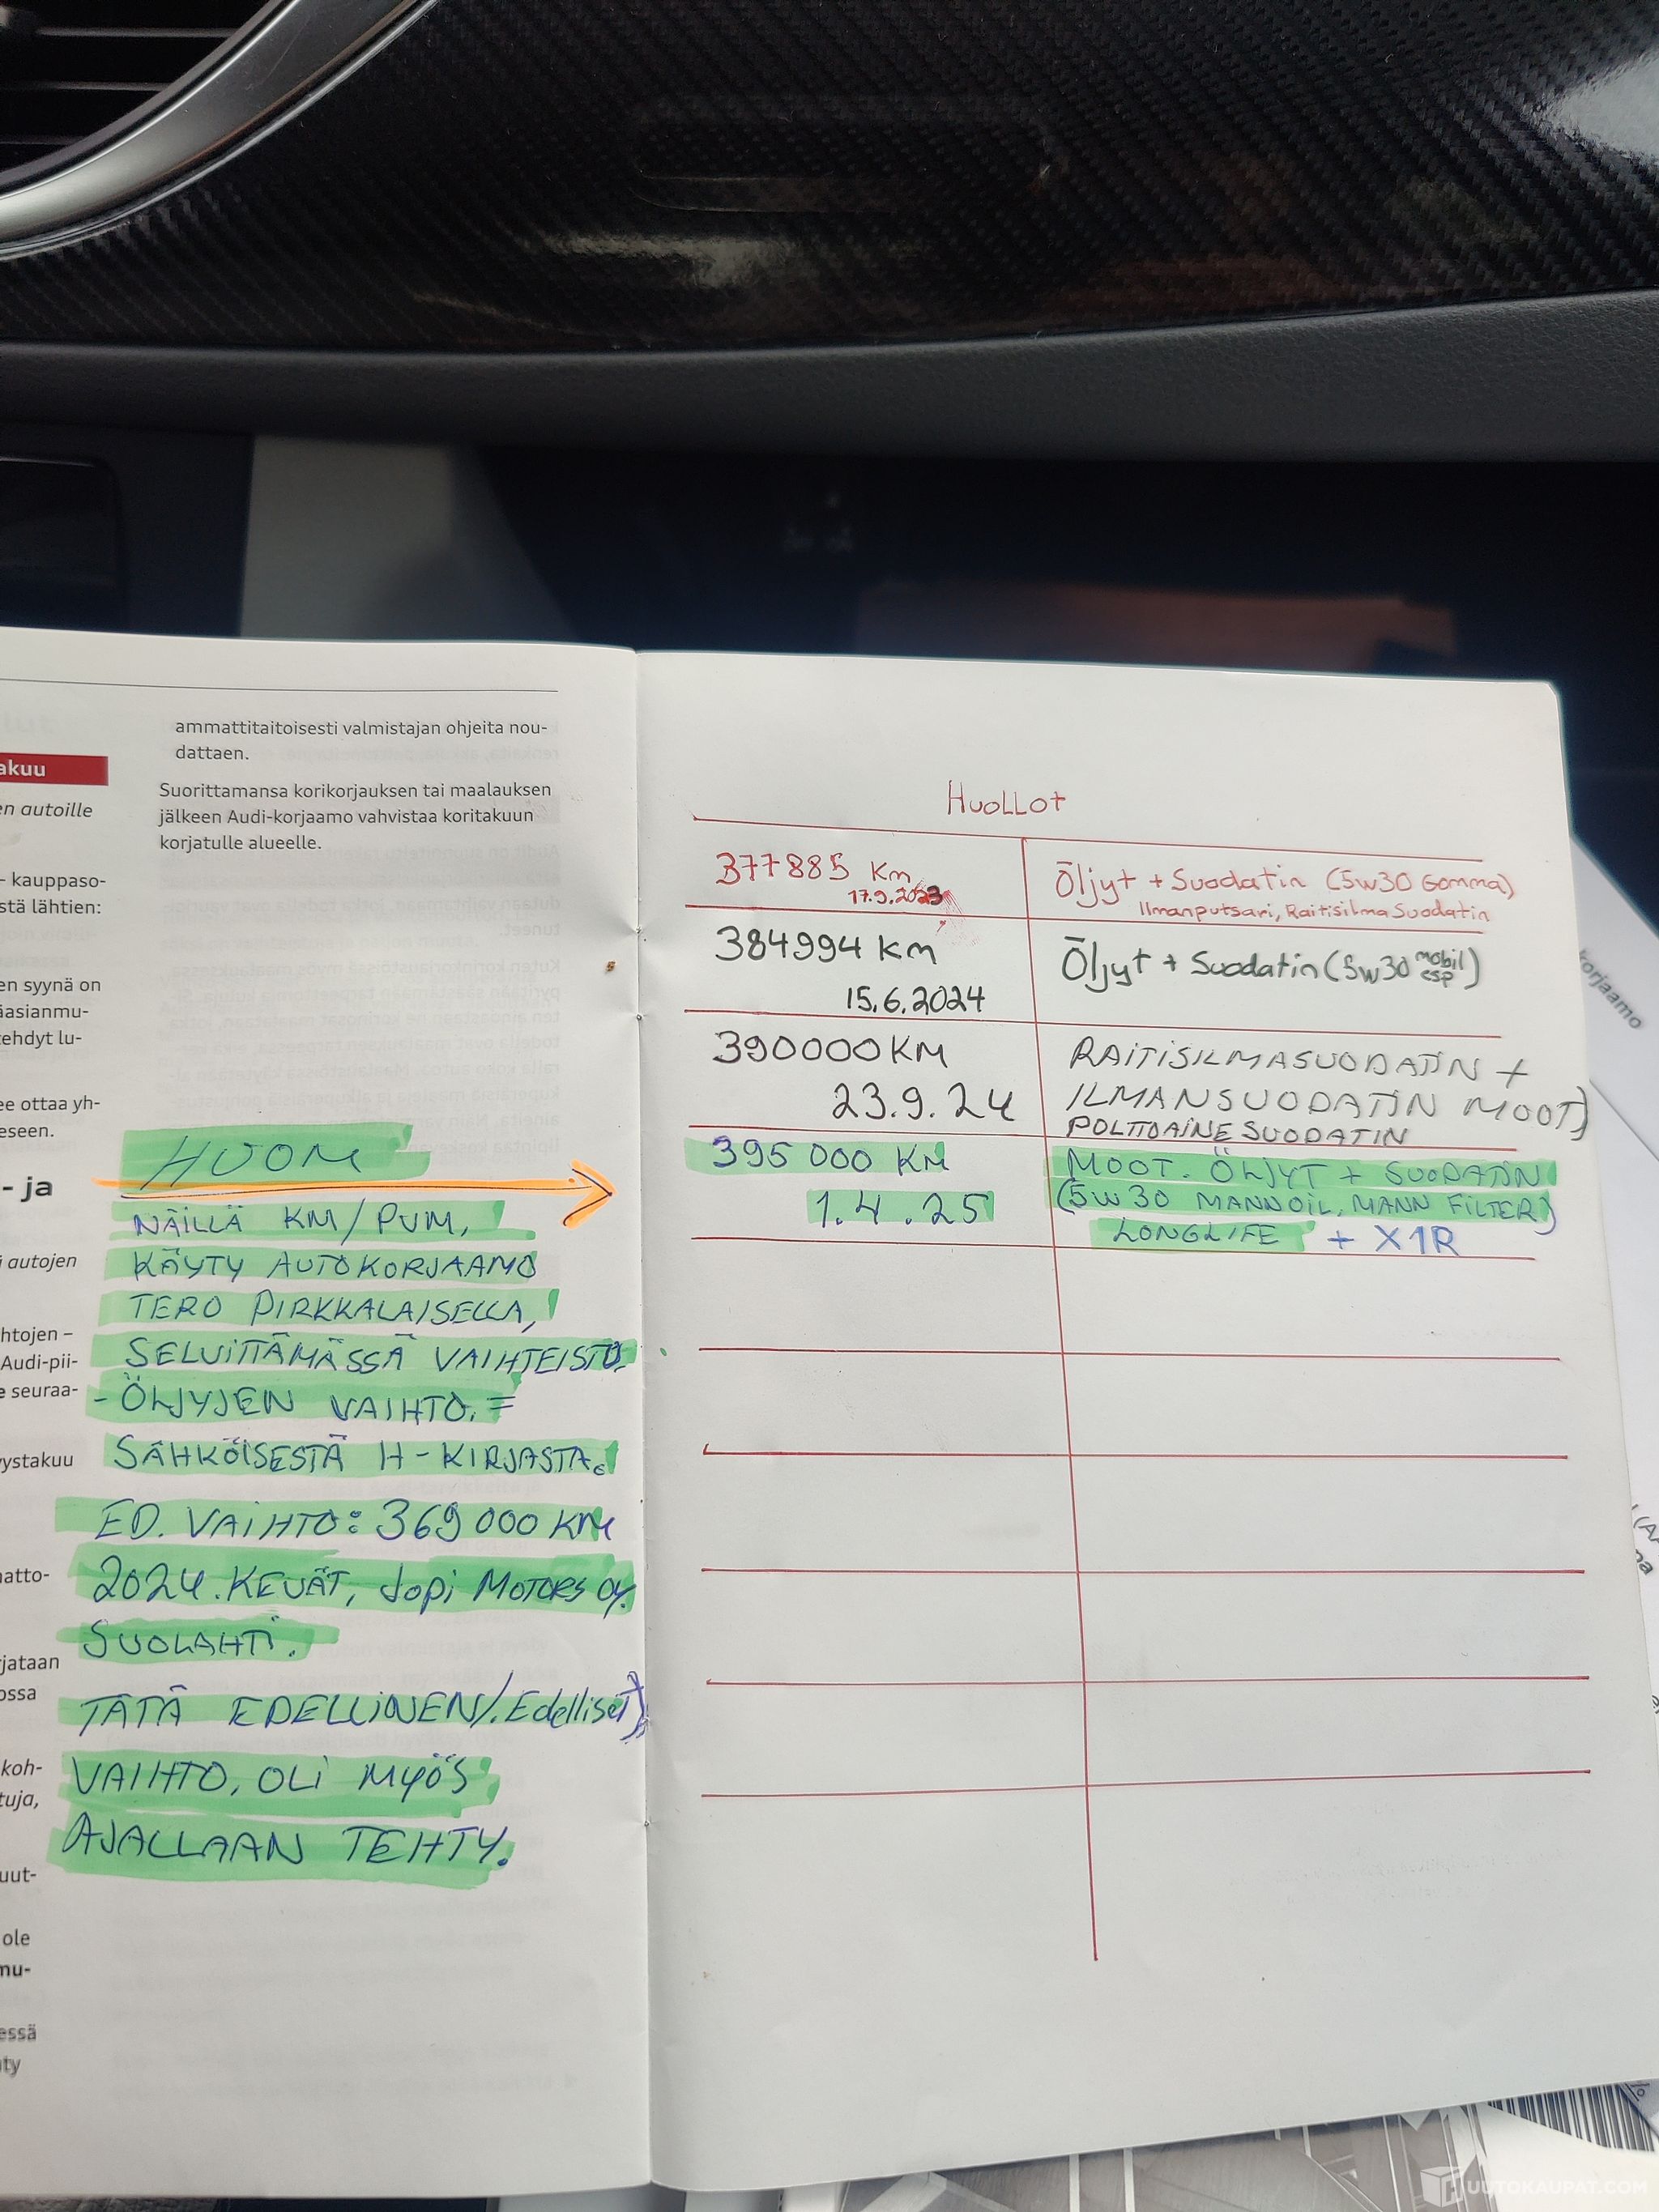 akuu
en autoille
- kauppaso-
stä lähtien:
en syynä on
äasianmu-
tehdyt lu-
ee ottaa yh-
eseen.
- ja
i autojen
htojen –
Audi-pii-
e seuraa-
ystakuu
atto-
jataan
ossa
koh-
tuja,
uut-
ole
mu-
essä
ty
ammattitaitoisesti valmistajan ohjeita nou-
dattaen.
Suorittamansa korikorjauksen tai maalauksen
jälkeen Audi-korjaamo vahvistaa koritakuun
korjatulle alueelle.
HUOM
NÄILLÄ KM/PVM,
KÄYTY AUTOKORJAAMO
TERO PIRKKALAISELLA,
SELVITTÄMÄSSÄ VAIHTEISTO
- ÖLJYJEN VAIHTO. =
SÄHKÖISESTÄ H-KIRJASTA.
ED. VAIHTO: 369 000 KM
2024. KEVÄT, Jopi MOTORS OY.
SUOLAHTI.
TÄTÄ EDELLINEN/.Edelliset)
VAIHTO, OLI MYÖS
AJALLAAN TEHTY.
HUOLLOT
377885 Km
17.9.2023
Öljyt + Suodatin (5w30 Gomma)
Ilmanputsari, RaitisilmaSuodatin
384994 Km
15.6.2024
Öljyt + Suodatin (5w30 mobil esp)
390000 KM
23.9.24
RAITISILMASUODATIN +
ILMANSUODATIN MOOT)
POLTTOAINESUODATIN
395 000 KM
1.4.25
MOOT. ÖLJYT + SUODATIN
(5W30 MANNOIL, MANN FILTER)
LONGLIFE + X1R
korjaamo
UUTOKAUPAT.COM